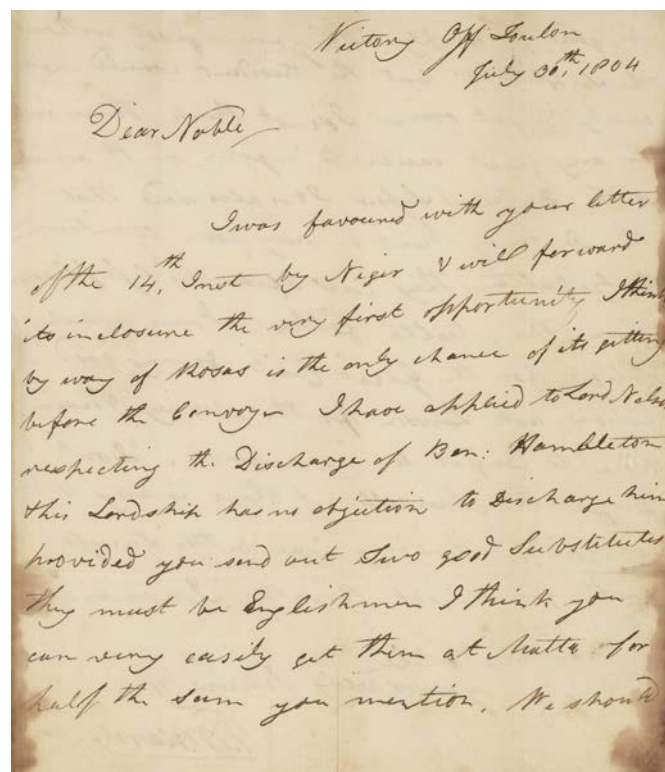 Victory Off Toulon
July 30th, 1804
Dear Noble
I was favoured with your letter
of the 14th, Inst by Niger & will forward
its inclosure the very first opportunity, I think
by way of Rosas is the only chance of its getting
before the Convoy— I have applied to Lord Nelson
respecting the Discharge of Ben: Hambleton
& his Lordship has no objection to Discharge him
provided you send out Two good Substitutes
they must be Englishmen I think you
can very easily get them at Malta for
half the sum you mention. We should